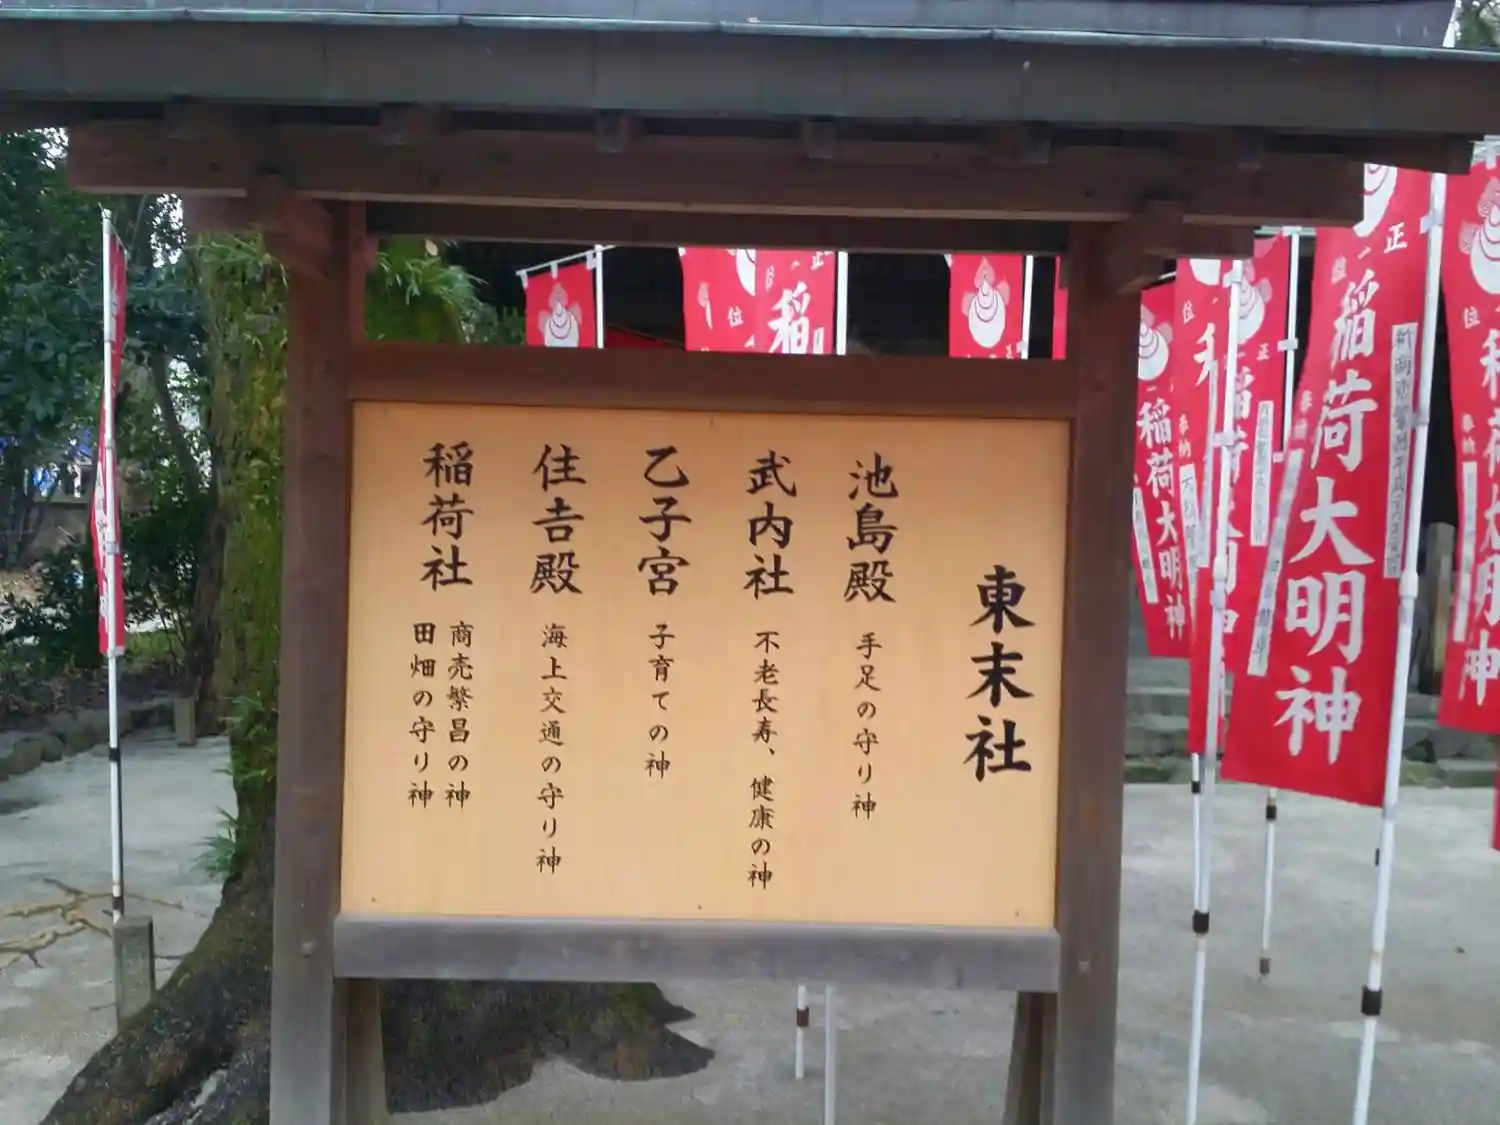 東末社
池島殿 手足の守り神
武内社 不老長寿、健康の神
乙子宮 子育ての神
住吉殿 海上交通の守り神
稲荷社 商売繁昌の神
田畑の守り神
正一位
稲
正一
稲荷大明神
奉納
位
稲荷大明神
正一
稲荷大明神
奉納
位
稲荷大明神